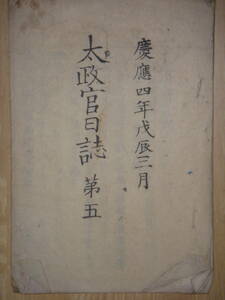 慶應四年戊辰三月
太政官日誌 第五